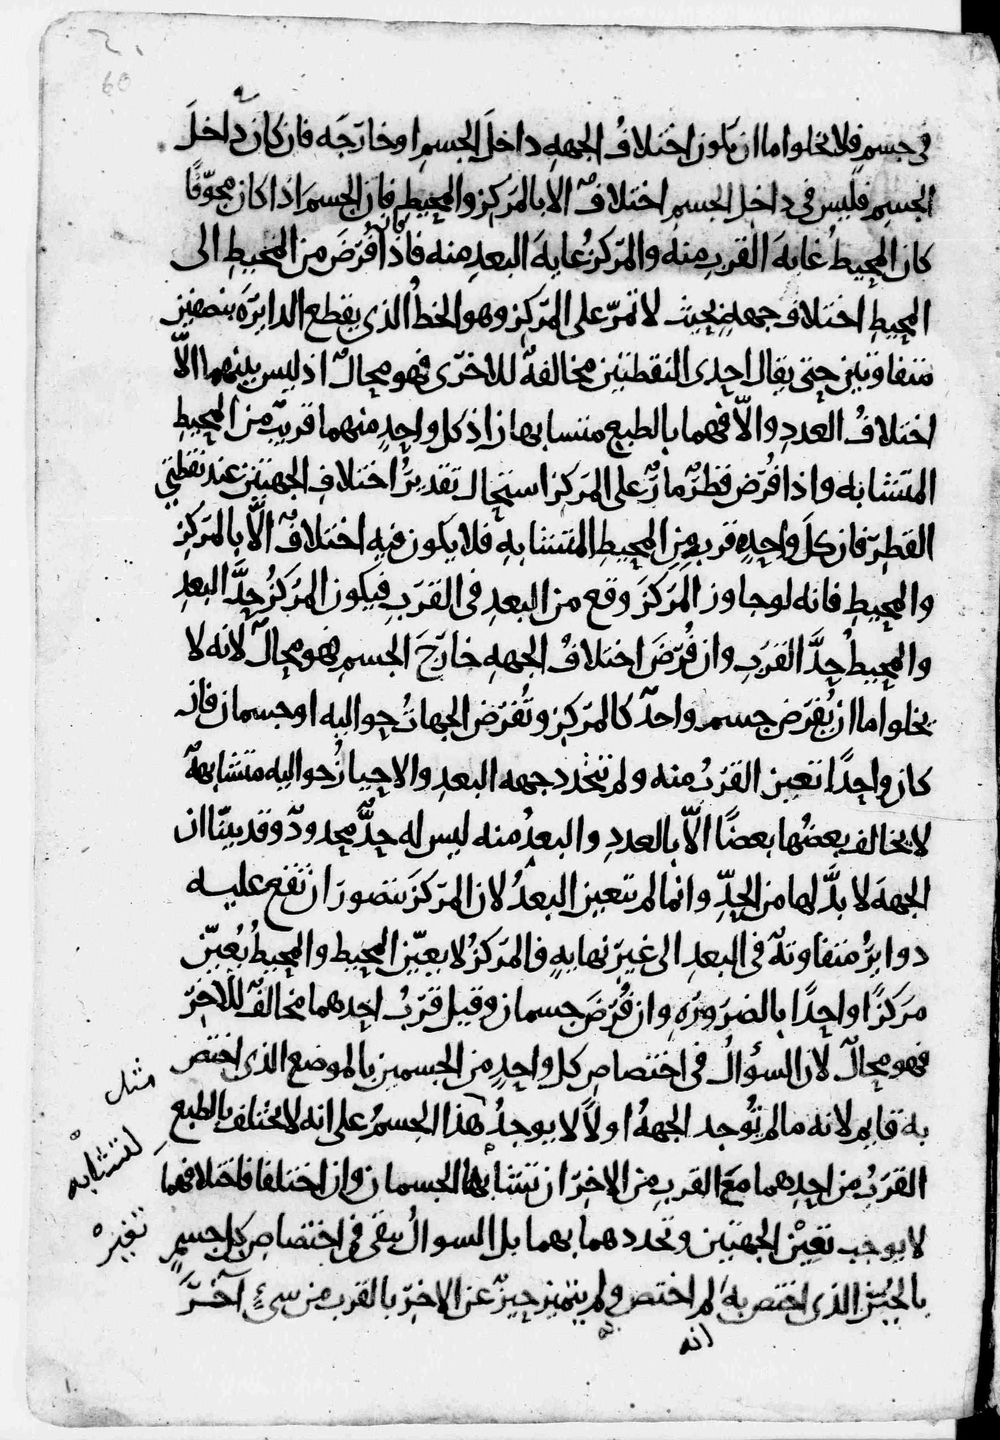 60
فى جسمٍ فلا يخلوا اما ان يكون اختلافُ الجهةِ داخلَ الجسمِ او خارجَه فان كان داخلَ
الجسمِ فليس فى داخلِ الجسمِ اختلافٌ الا بالمركز والمحيطِ فان الجسمَ اذا كان مجوّفًا
كان المحيطُ غايةَ القربِ منه والمركزُ غايةَ البعدِ منه فاذا فُرضَ من المحيطِ الى
المحيطِ اختلاف جهةٍ بحيث لا تمرّ على المركزِ وهو الخطُ الذى يقطع الدائرةَ بنصفين
متفاوتين حتى يقال احدى النقطتين مخالفةٌ للاخرى فهو محالٌ اذ ليس بينهما الاّ
اختلافُ العددِ والاّ فهما بالطبع متشابهان اذ كل واحدٍ منهما قريبٌ من المحيطِ
المتشابه واذا فُرض قطرٌ مارٌّ على المركزِ استحال تقديرُ اختلافِ الجهتين عند نقطتى
القطرِ فان كلَ واحدٍ قربه من المحيطِ المتشابهِ فلا يكون فيه اختلافٌ الاّ بالمركزِ
والمحيطِ فانه لو جاوز المركزَ وقع من البعدِ فى القربِ فيكون المركزُ حدَّ البعدِ
والمحيطُ حدَّ القربِ وان فُرضَ اختلافُ الجهةِ خارجَ الجسمِ فهو محالٌ لانه لا
يخلوا اما ان يُفرض جسم واحدٌ كالمركزِ وتُفرض الجهاتُ حواليه او جسمان فان
كان واحدًا تعين القربُ منه ولم تتحدد جهه البعدِ والاحيازُ حواليه متشابهةٌ
لا يخالف بعضُها بعضًا الاّ بالعددِ والبعدُ منه ليس له حدٌّ محدودٌ وقد بيّنّا ان
الجهةَ لا بدَّ لها من الحدِّ وانما لم يتعين البعدُ لان المركزَ يتصور ان تقع عليه
دوائرُ متفاوتةٌ فى البعدِ الى غيرِ نهايةٍ فالمركزُ لا يعيّن المحيط والمحيطُ يُعيّن
مركزًا واحدًا بالضرورةِ وان فُرضَ جسمان وقيل قربُ احدهما مخالفٌ للاخرِ
فهو محالٌ لان السؤالُ فى اختصاصِ كل واحدٍ من الجسمين بالموضع الذى اختص
به قايم لانه ما لم تُوجد الجهةُ اولاً لا يوجدُ هذا الجسمُ على انه لا يختلف بالطبع
القربُ من احدِهما مع القربِ من الاخرِ ان تشابها الجسمان وان اختلفا فاختلافهما
لا يوجب تعيْنَ الجهتين وتحددهما بهما بل السوالُ يبقى فى اختصاصِ كل جسمٍ
بالحيزِ الذى اختص به لم اختص ولم يتميز حيزٌ عن الاخرِ بالقرب من شىءٍ آخرَ
مثل
المتشابه
تغيره
به
انه